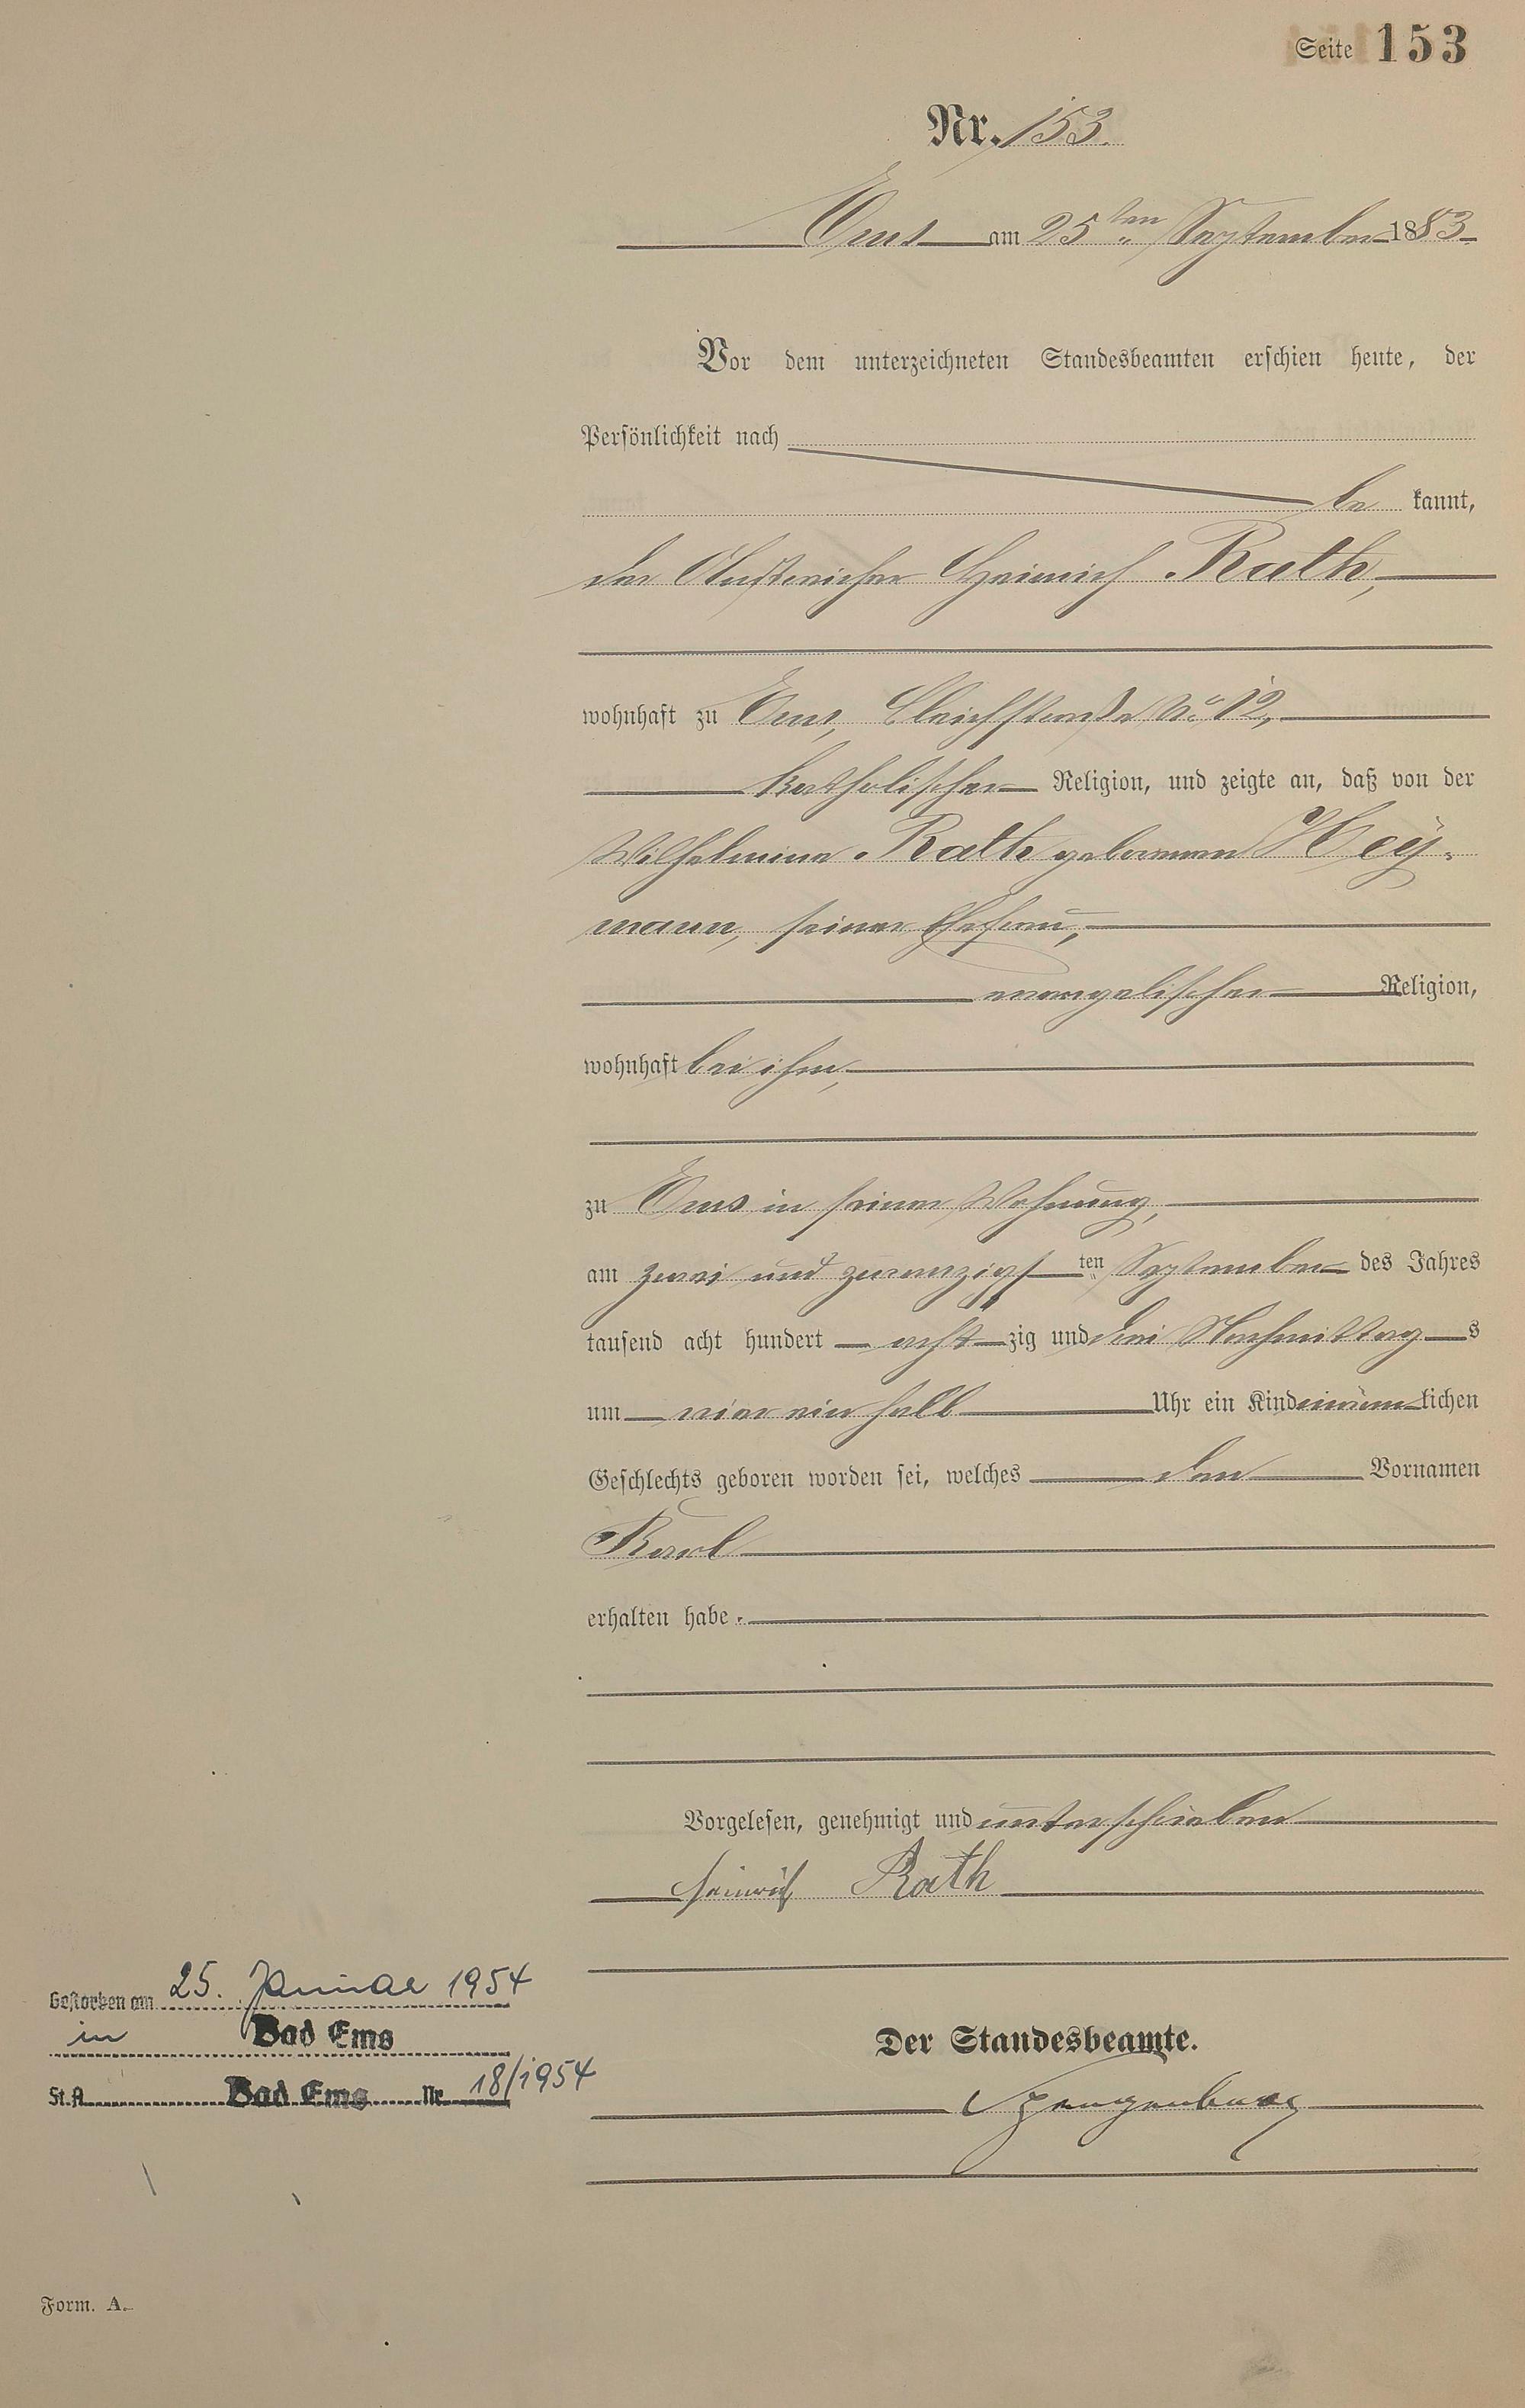 Seite 153
Nr. 153.
Ems am 25ten September 1883
Vor dem unterzeichneten Standesbeamten erschien heute, der
Persönlichkeit nach
be kannt,
der Anstreicher Heinrich Rath,
wohnhaft zu Ems, Bleichstraße No 12,
katholischer Religion, und zeigte an, daß von der
Wilhelmine Rath geborenen Hey-
mann, seiner Ehefrau,
evangelischer Religion,
wohnhaft bei ihm,
zu Ems in seiner Wohnung,
am zwei und zwanzigsten September des Jahres
tausend acht hundert achtzig und drei Nachmittags
um vier ein halb Uhr ein Kind männlichen
Geschlechts geboren worden sei, welches den Vornamen
Karl
erhalten habe.
Vorgelesen, genehmigt und unterschrieben
Heinrich Rath
Der Standesbeamte.
Spangenberg
Gestorben am 25. Januar 1954
in Bad Ems
St. A. Bad Ems Nr. 18/1954
Form. A.